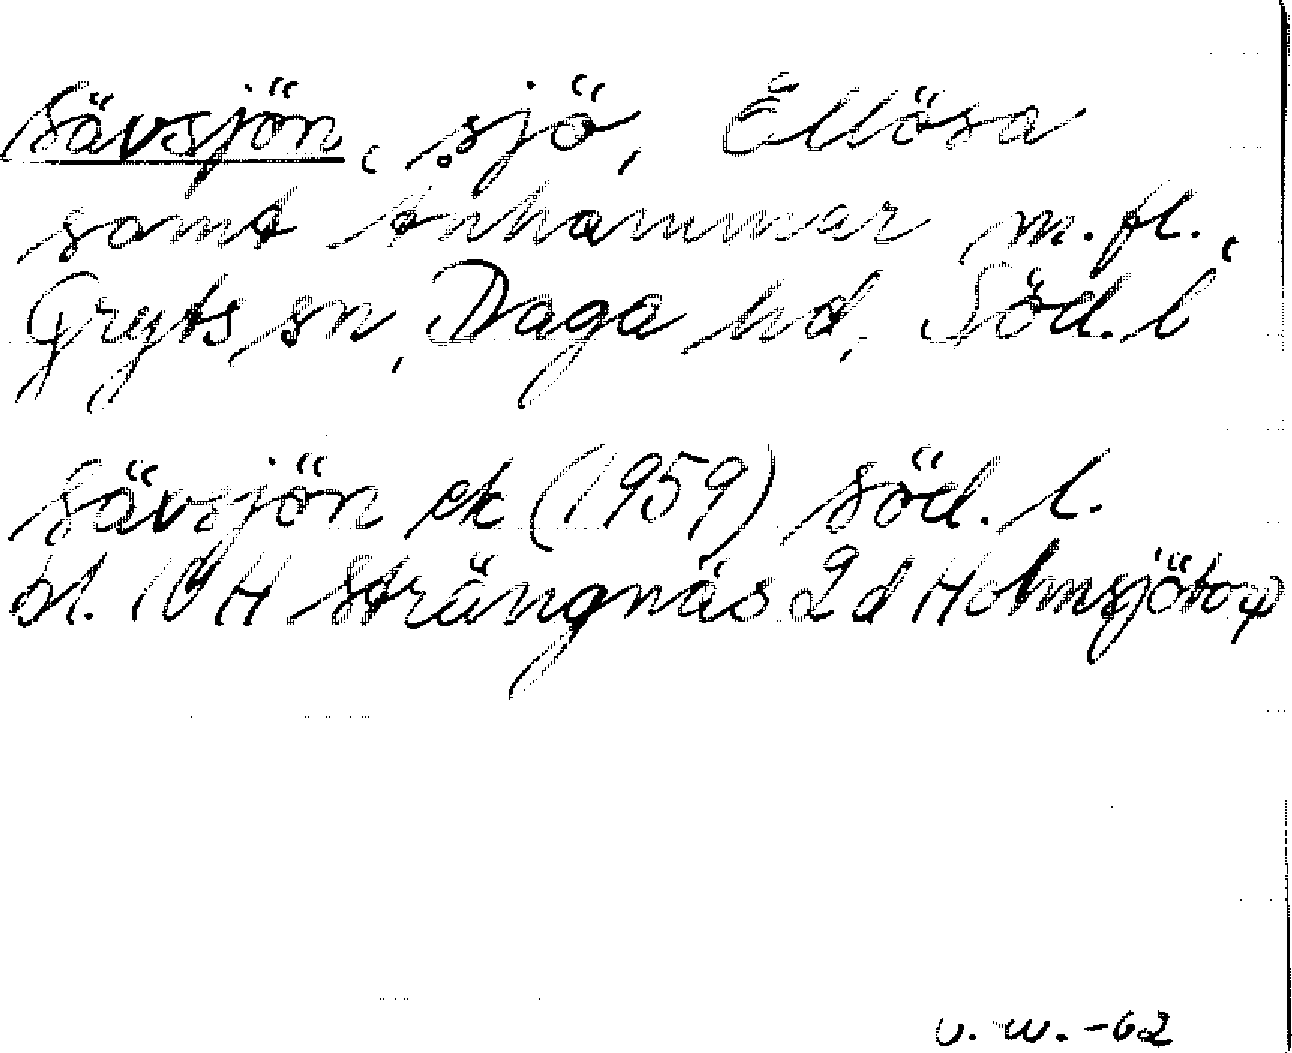 Sävsjön, sjö, Ellösa
samt Änhammar m.fl.,
Gryts sn, Daga hd, Söd. l
Sävsjön ek (1959) Söd. l.
bl. 10 H Strängnäs 2 d Holmsjötorp
v. w. -62